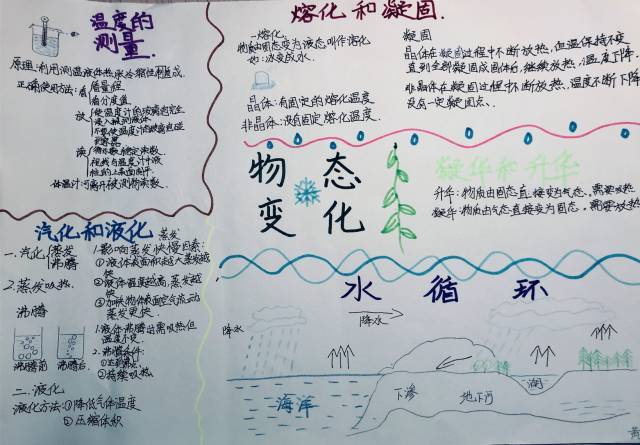 温度的
测量
原理:利用测温液体热胀冷缩的
正确使用方法:看
看量程
看分度值
放
使温度计的玻璃泡完全
浸入被测液体
不要使温度计的玻璃泡碰
读
待示数稳定读数.
视线与温度计中液
柱的上表面相平.
体温计可离开被测物读数.
熔化和凝固.
一.熔化
物质由固态变为液态叫作熔化
如:冰变成水.
晶体:有固定的熔化温度
非晶体:没有固定熔化温度.
凝固
晶体在凝固过程中不断放热,但温保持不变
直到全部凝固成固体后,继续放热,温度下降.
非晶体在凝固过程中不断放热,温度不断下降
没有一定凝固点.
物态
变化
凝华和升华
升华:物质由固态直接变为气态,需要吸热
凝华:物质由气态直接变为固态,需要放热
汽化和液化
一.汽化
蒸发
沸腾
2.蒸发吸热.
沸腾
沸腾前
沸腾后
二.液化
液化方法:①降低气体温度
②压缩体积
蒸发
1.影响蒸发快慢因素:
①液体表面积越大蒸发越
快
②液体温度越高,蒸发越
快
③加快物体表面空气流动
蒸发更快.
1.液体沸腾时需吸热但
温度不变.
2.沸腾条件:
②持续吸热
水循环
降水
降水
海洋
下渗
地下
湖